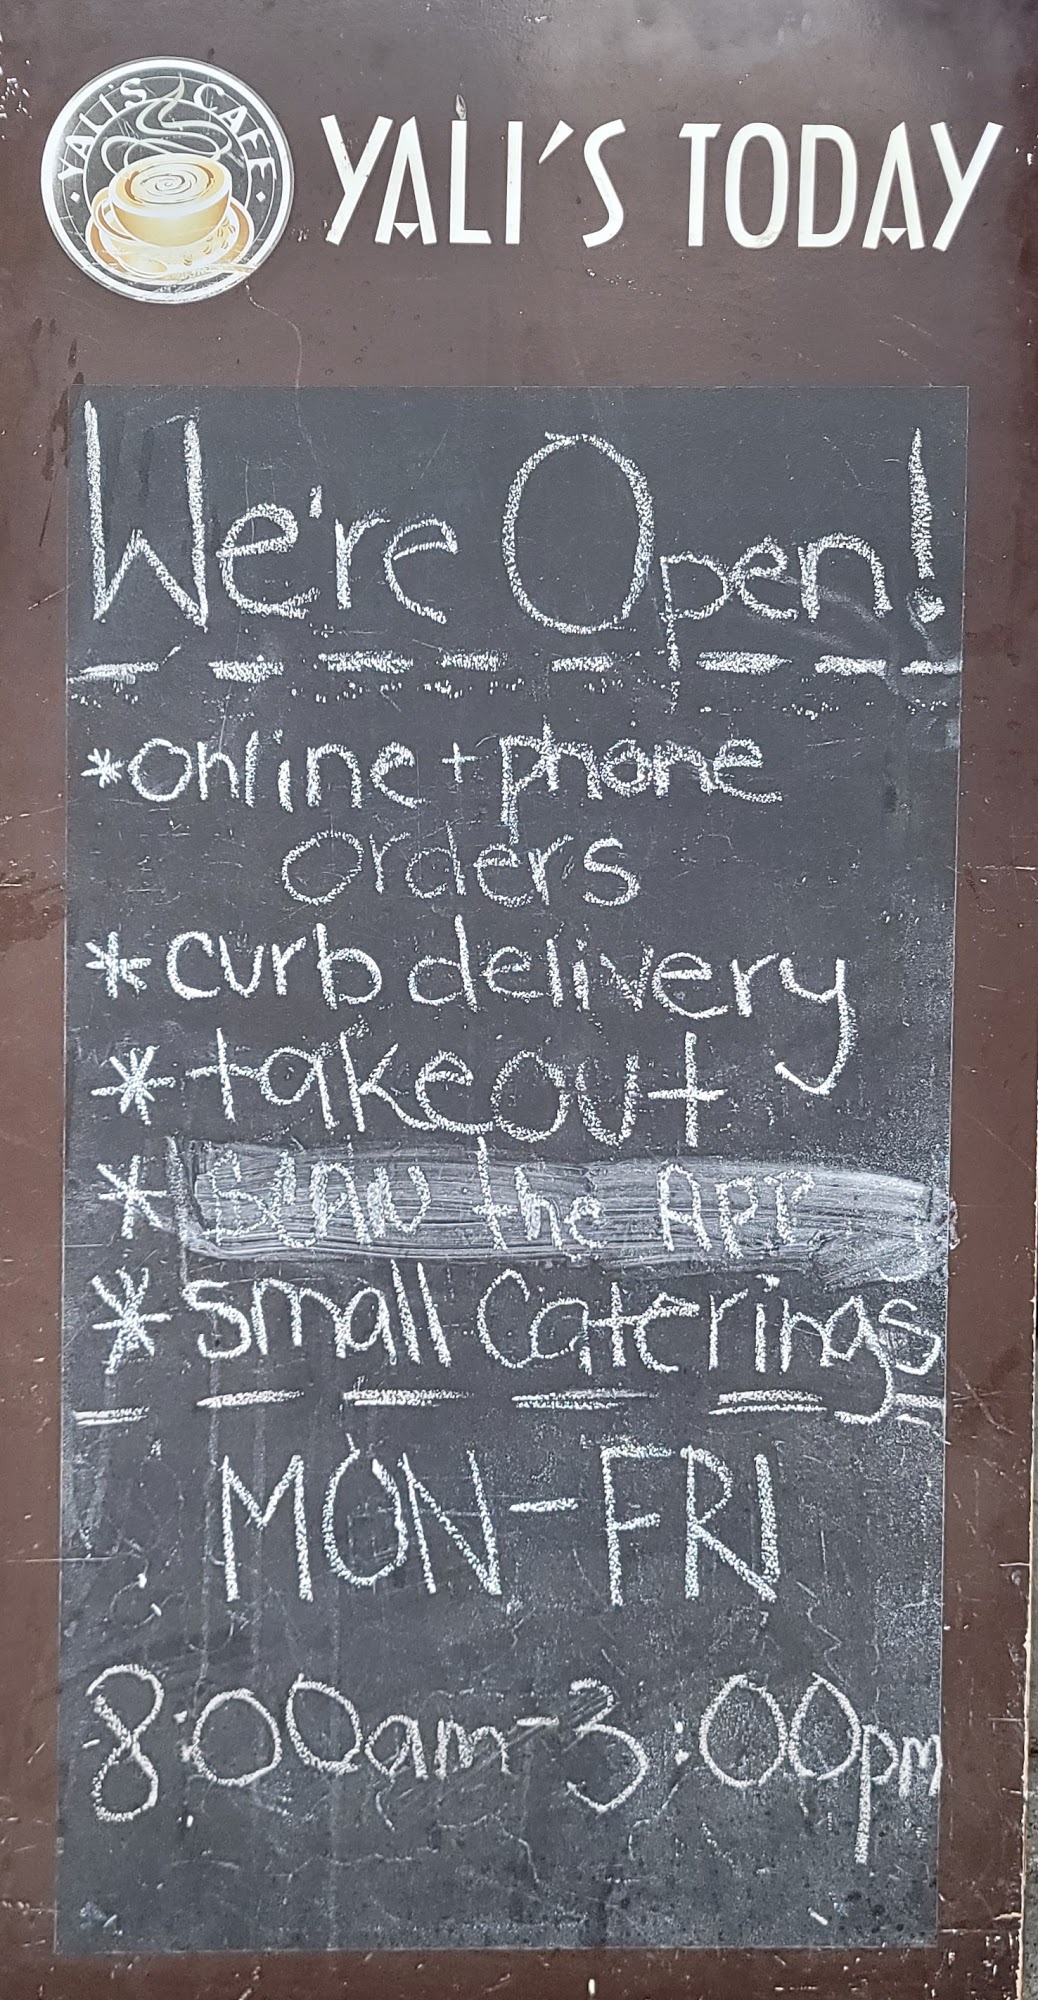 YALI'S CAFE
YALI'S TODAY
We're Open!
*online + phone
orders
*curb delivery
*takeout
* the APP
*small Caterings
MON-FRI
8:00am-3:00pm